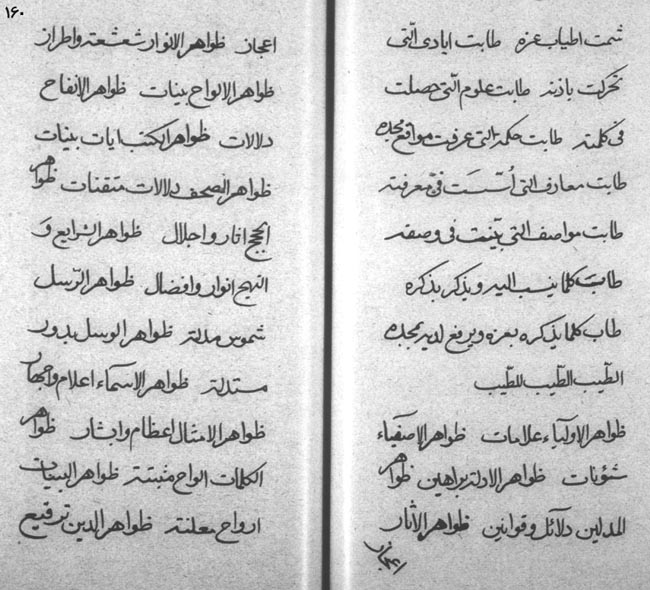 ۱۶۰
شمت اطیاب عزه طابت ایادی الّتی
تحرکت باذنه طابت علوم الّتی حصلت
فی کلمته طابت حکمة التی عرفت مواقع مجده
طابت معارف التی اُسّست فی معرفته
طابت مواصف التی بیّنت فی وصفه
طابت کلما ینسب الیه و یذکر بذکره
طاب کلما یذکره بعزه ویرفع لدیه بمجده
الطّیب الطّیب للطّیب
ظواهر الاولیآء علامات ظواهر الاصفیاء
شئونات ظواهر الادلة براهین ظواهر
المدلین دلآئل وقوانین ظواهر الاثار
اعجاز
اعجاز ظواهر الانوار شعشعة واطراز
ظواهر الالواح بینات ظواهر الانفاح
دلالات ظواهر الکتب ایات بینات
ظواهر الصحف دلالات متقنات ظواهر
الحجج اثار و اجلال ظواهر الشرایع و
النهج انوار وافضال ظواهر الرّسل
شموس مدلة ظواهر الوسل بدور
مستدلة ظواهر الاسماء اعلام واجهار
ظواهر الامثال اعظام وایثار ظواهر
الکلمات الواح مثبتة ظواهر البینات
ارواح معلنة ظواهر الدین ترفیع